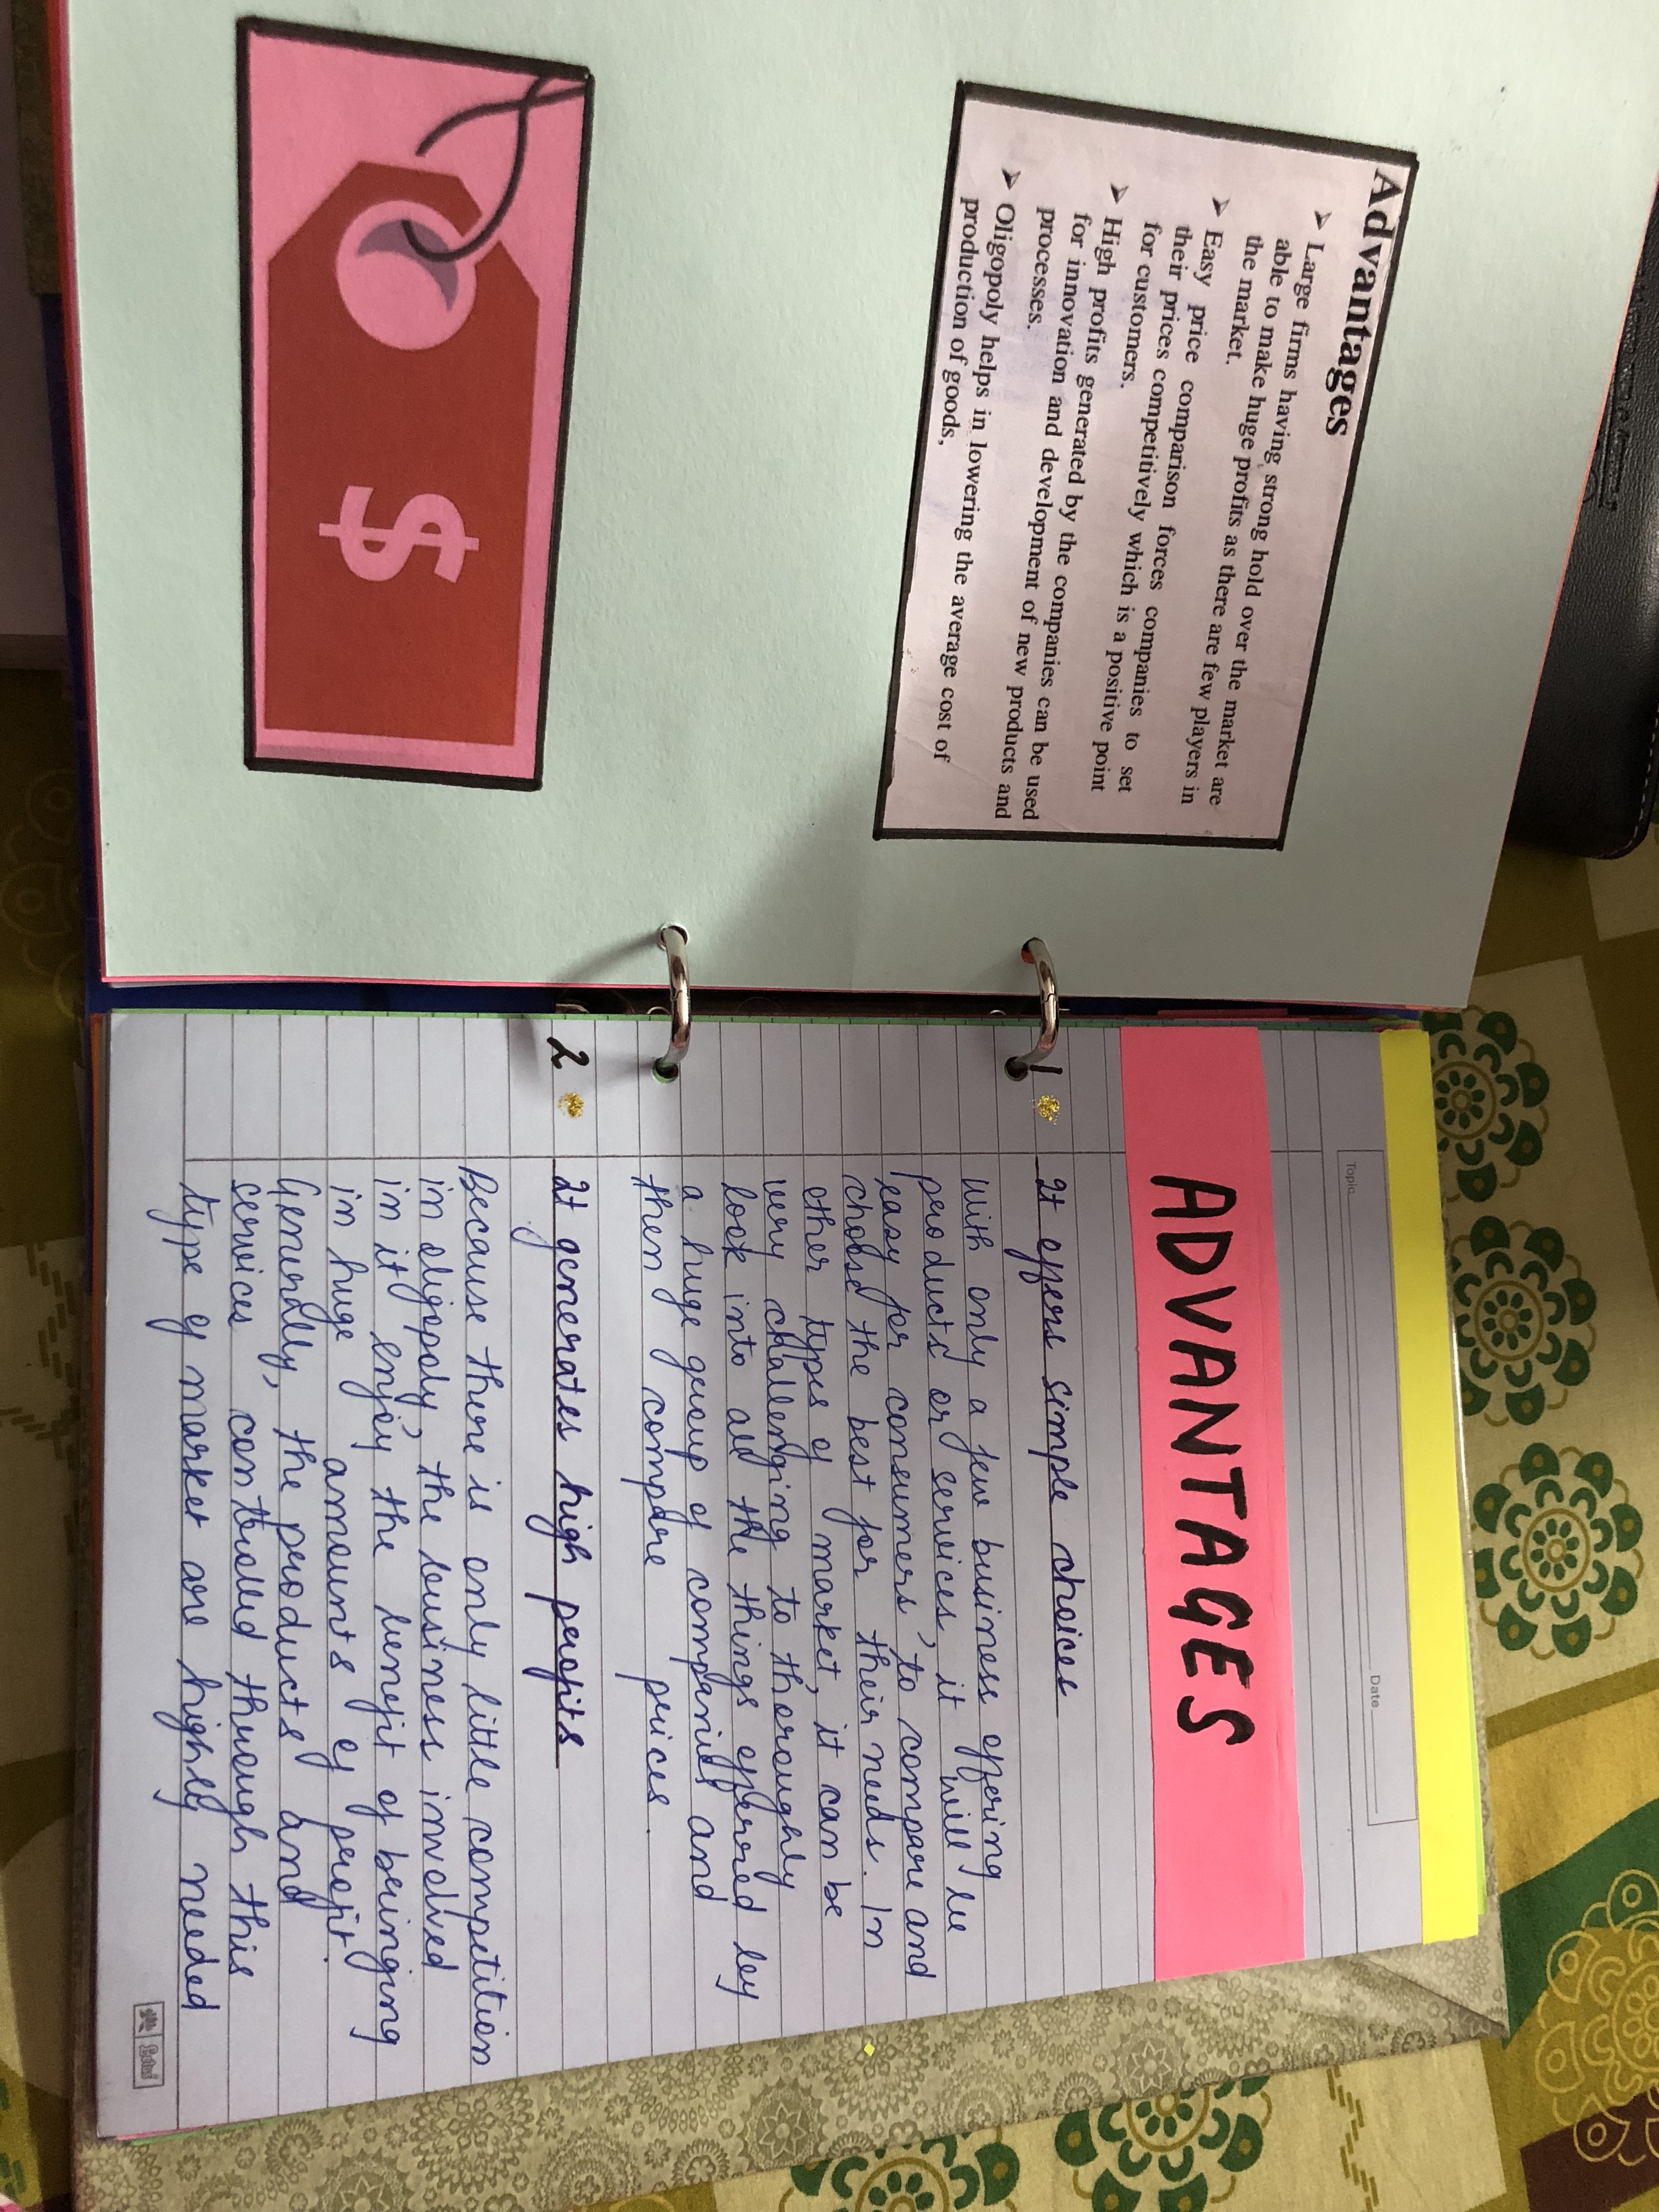 Advantages
➤ Large firms having strong hold over the market are
able to make huge profits as there are few players in
the market.
➤ Easy price comparison forces companies to set
their prices competitively which is a positive point
for customers.
➤ High profits generated by the companies can be used
for innovation and development of new products and
processes.
➤ Oligopoly helps in lowering the average cost of
production of goods,
$
Topic
Date
ADVANTAGES
1 It offers simple choices
With only a few business offering
products or services, it will be
easy for consumers, to compare and
choose the best for their needs. In
other types of market, it can be
very challenging to thoroughly
look into all the things offerred by
a huge group of companies and
then compare prices.
2 It generates high profits
Because there is only little competition
in oligopoly, the business involved
in it enjoy the benefit of bringing
in huge amounts of profit.
Generally, the products and
services controlled through this
type of market are highly needed